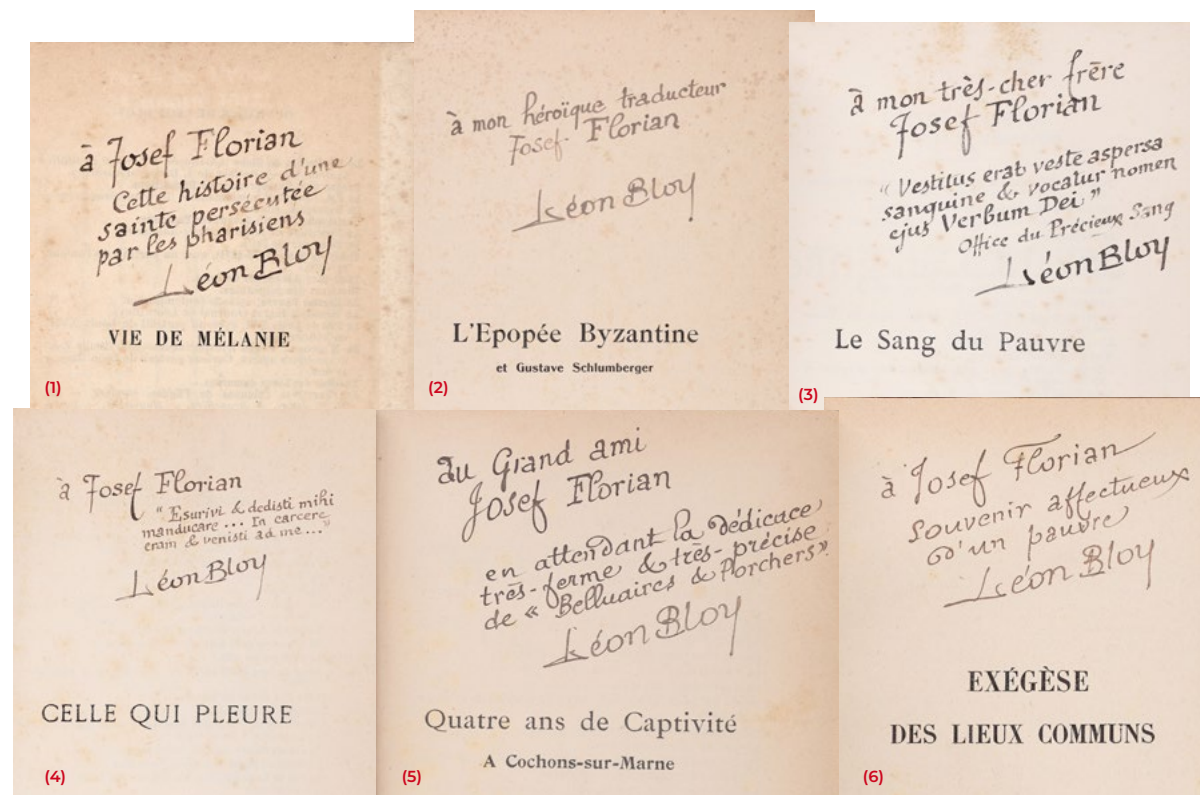 à Josef Florian
Cette histoire d'une
sainte persécutée
par les pharisiens
Léon Bloy
VIE DE MÉLANIE
(1)
à mon héroïque traducteur
Josef Florian
Léon Bloy
L'Epopée Byzantine
et Gustave Schlumberger
(2)
à mon très-cher frère
Josef Florian
“ Vestitus erat veste aspersa
sanguine & vocatur nomen
ejus Verbum Dei ”
Office du Précieux Sang
Léon Bloy
Le Sang du Pauvre
(3)
à Josef Florian
“ Esurivi & dedisti mihi
manducare ... In carcere
eram & venisti ad me ... ”
Léon Bloy
CELLE QUI PLEURE
(4)
au Grand ami
Josef Florian
en attendant la dédicace
très-ferme & très-précise
de « Belluaires & Porchers ».
Léon Bloy
Quatre ans de Captivité
A Cochons-sur-Marne
(5)
à Josef Florian
souvenir affectueux
d'un pauvre
Léon Bloy
EXÉGÈSE
DES LIEUX COMMUNS
(6)